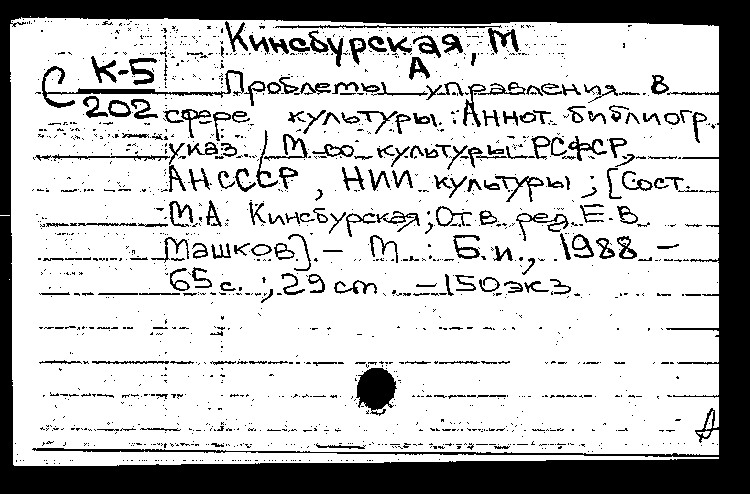 Кинсбурская, М
А
С К-5
202
Проблемы управления в
сфере культуры : Аннот. библиогр.
указ / М-во культуры РСФСР,
АН СССР, НИИ культуры ; [Сост.
М.А. Кинсбурская; Отв. ред. Е.В.
Машков]. - М. : Б.и., 1988 -
65 с. ; 29 cm. - 150 экз